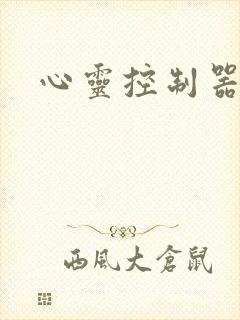 心靈控制器
西風大倉鼠